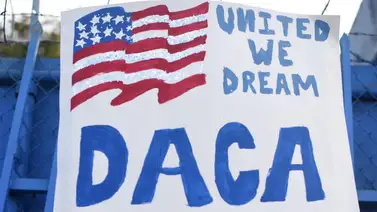 UNITED
WE
DREAM
DACA